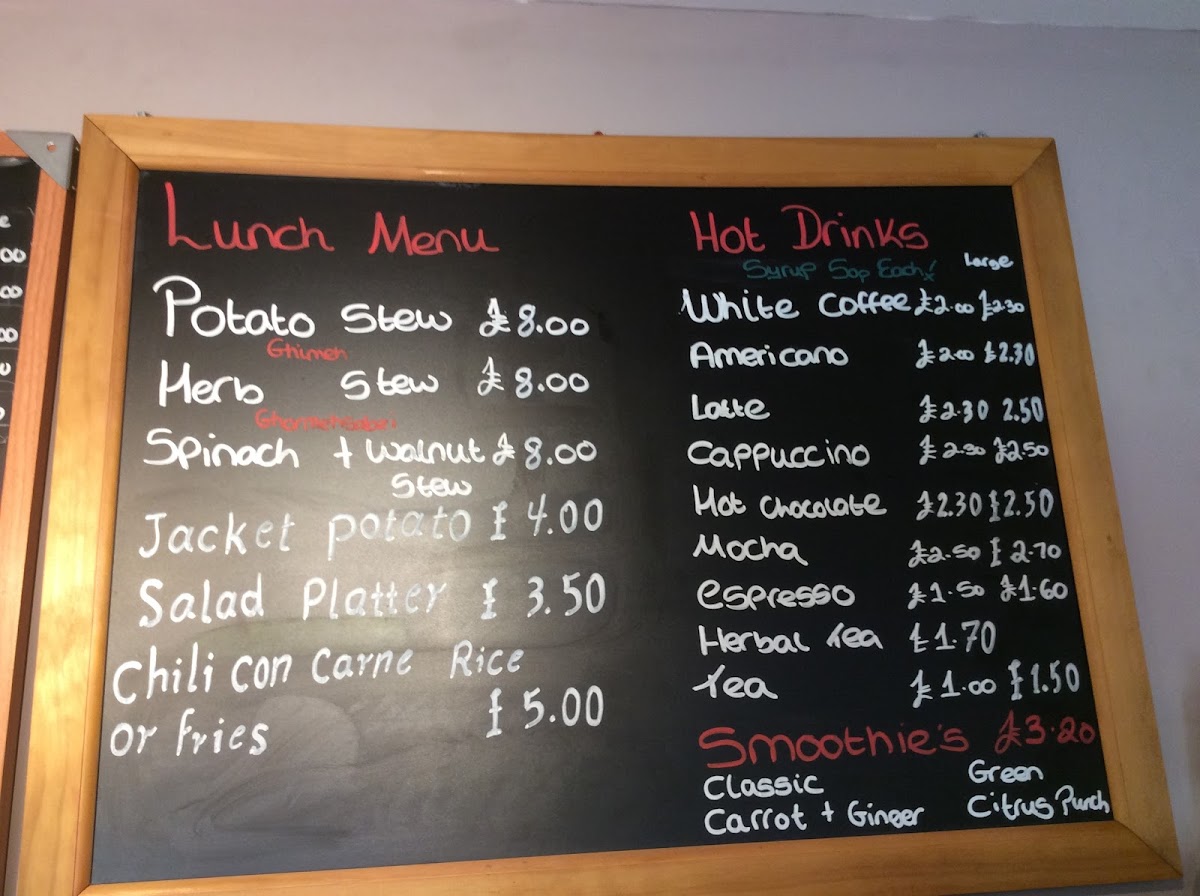 Lunch Menu
Potato Stew £8.00
Ghimeh
Herb Stew £8.00
Spinach + walnut £8.00
Stew
Jacket potato £4.00
Salad Platter £3.50
Chili con Carne Rice
or fries £5.00
Hot Drinks
Syrup 50p Each! Large
White Coffee £2.00 £2.30
Americano £2.00 £2.30
Latte £2.30 2.50
Cappuccino £2.30 £2.50
Hot Chocolate £2.30 £2.50
Mocha £2.50 £2.70
Espresso £1.50 £1.60
Herbal Tea £1.70
Tea £1.00 £1.50
Smoothie's £3.20
Classic Green
Carrot + Ginger Citrus Punch